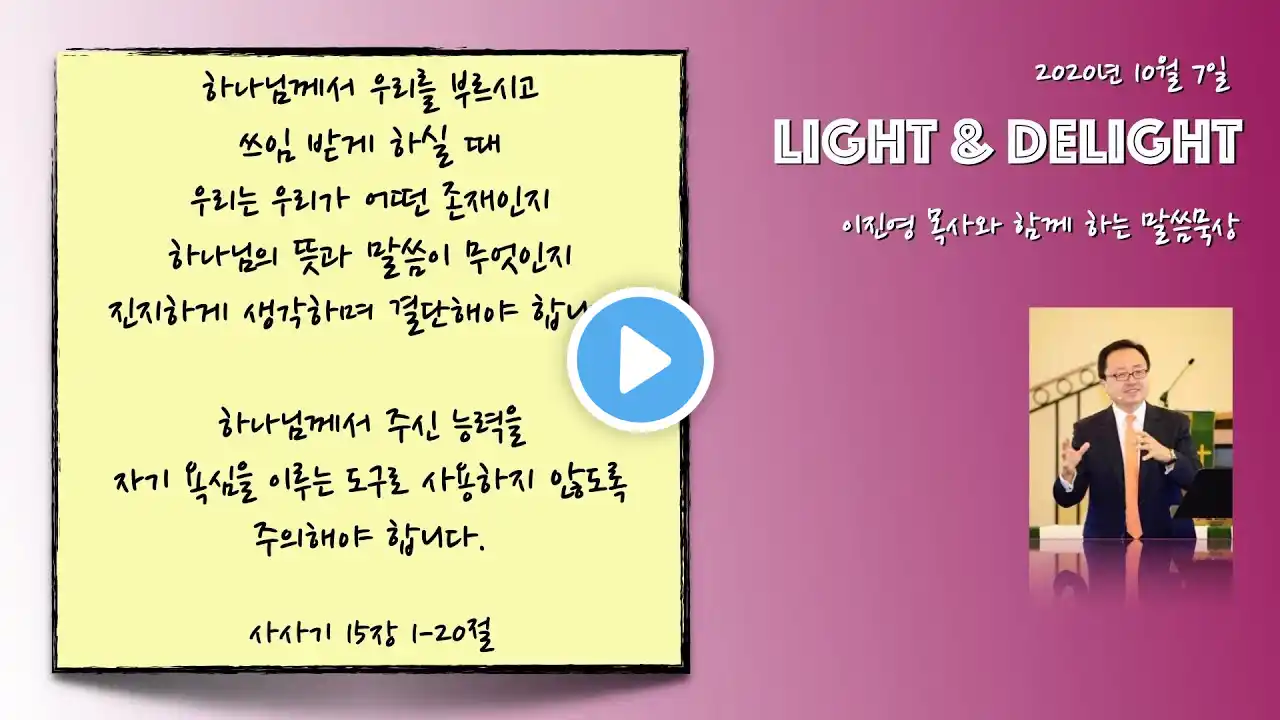 하나님께서 우리를 부르시고
쓰임 받게 하실 때
우리는 우리가 어떤 존재인지
하나님의 뜻과 말씀이 무엇인지
진지하게 생각하며 결단해야
하나님께서 주신 능력을
자기 욕심을 이루는 도구로 사용하지 않도록
주의해야 합니다.
사사기 15장 1-20절
2020년 10월 7일
LIGHT & DELIGHT
이진영 목사와 함께 하는 말씀묵상